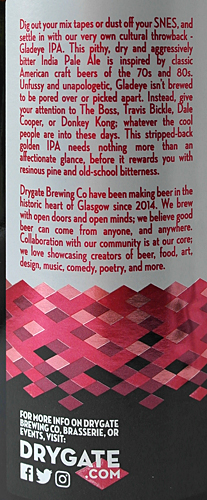 Dig out your mix tapes or dust off your SNES, and
settle in with our very own cultural throwback -
Gladeye IPA. This pithy, dry and aggressively
bitter India Pale Ale is inspired by classic
American craft beers of the 70s and 80s.
Unfussy and unapologetic, Gladeye isn't brewed
to be pored over or picked apart. Instead, give
your attention to The Boss, Travis Bickle, Dale
Cooper, or Donkey Kong; whatever the cool
people are into these days. This stripped-back
golden IPA needs nothing more than an
affectionate glance, before it rewards you with
resinous pine and old-school bitterness.
Drygate Brewing Co have been making beer in the
historic heart of Glasgow since 2014. We brew
with open doors and open minds; we believe good
beer can come from anyone, and anywhere.
Collaboration with our community is at our core;
we love showcasing creators of beer, food, art,
design, music, comedy, poetry, and more.
FOR MORE INFO ON DRYGATE
BREWING CO, BRASSERIE, OR
EVENTS, VISIT:
DRYGATE
.COM